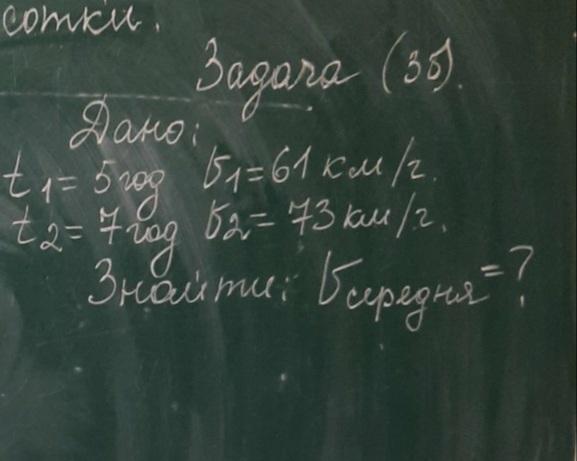 сотки.
Задача (3б).
Дано:
t1 = 5 год V1 = 61 км/г.
t2 = 7 год V2 = 73 км/г.
Знайти: Vсередня = ?